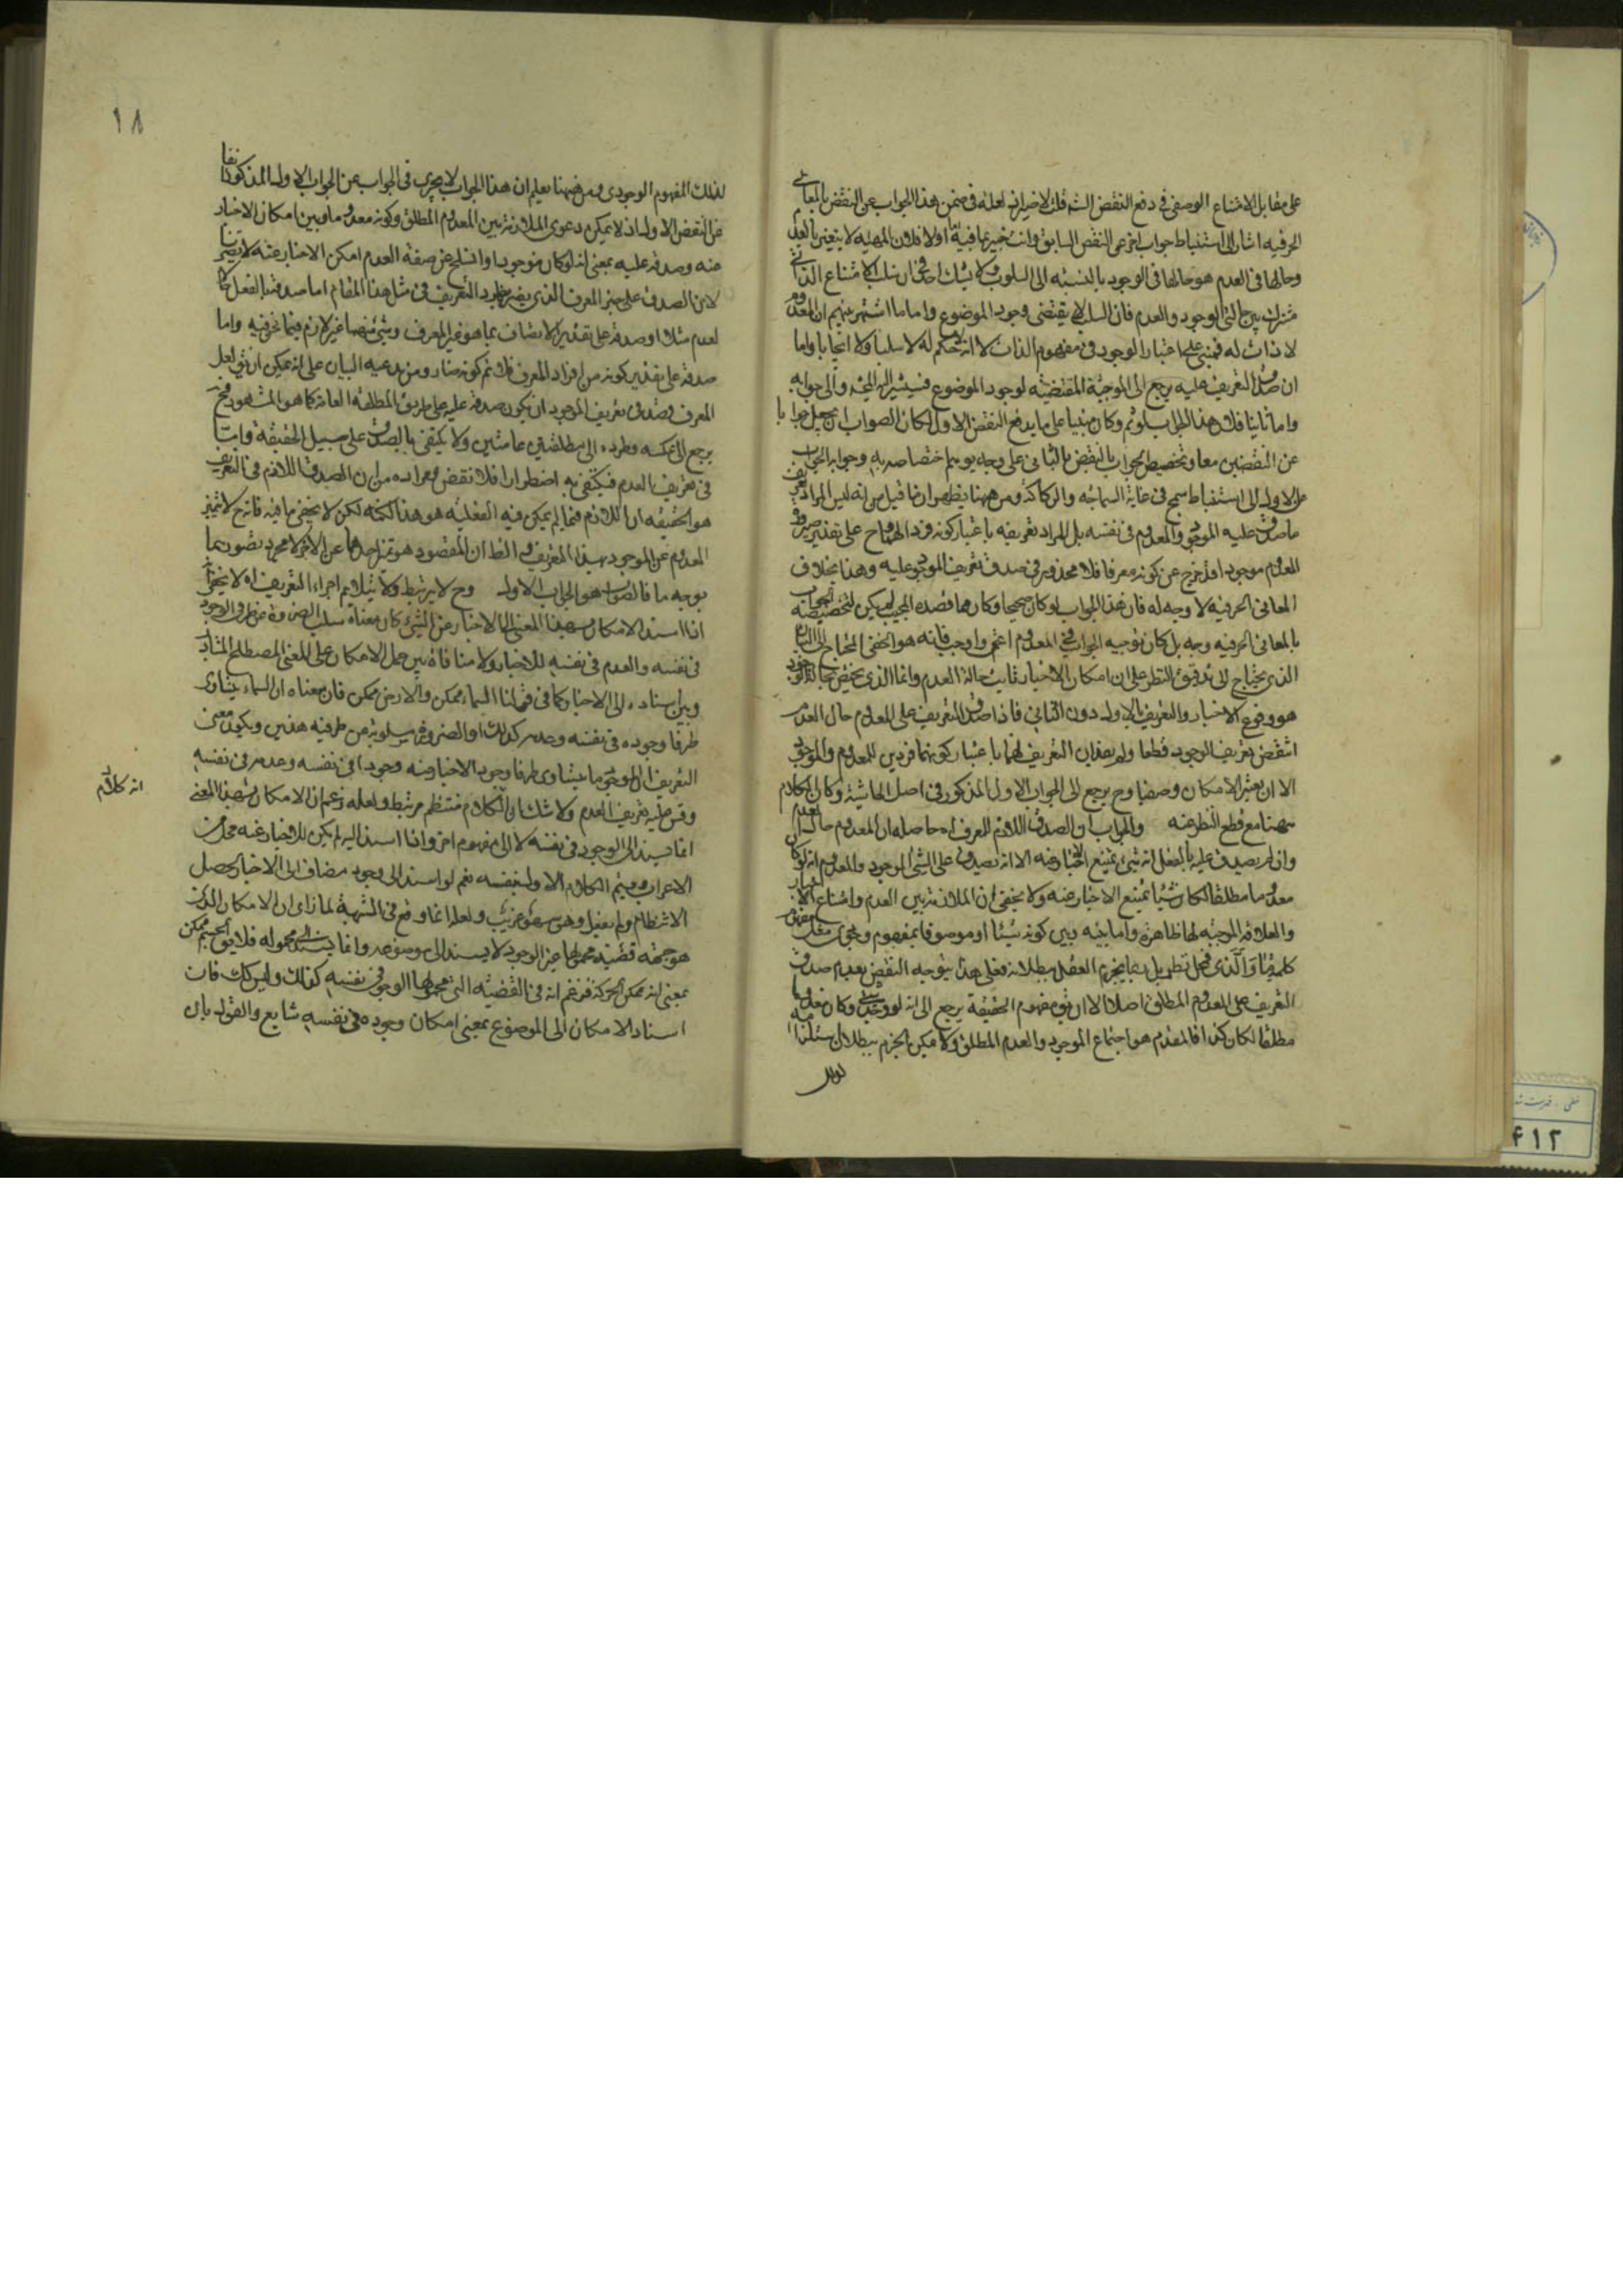 على مقابل الامتناع الوصفى فى دفع النقض الثـ قلت لاخيرانه لعله فى ضمن هذا الجواب عن النقض بالمعانى
الحرفيه اشار الى استنباط جواب اخر عن النقض السابق وانت خبير بما فيه اما اولا فلان المهيه لا يتغير بالعدم
وحالها فى العدم هو حالها فى الوجود بالنسبه الى السلوب ولا شك ان سلب الامتناع الذاتى
مشترك بين حالتى الوجود والعدم فان السلب لا يقتضى وجود الموضوع واما ما اشتهر بينهم ان المعدوم
لا ذات له فمبنى على اعتبار الوجود فى مفهوم الذات لا انه لا حكم له لا سلبا ولا ايجابا واما
ان صدق التعريف عليه يرجع الى الموجبة المقتضية لوجود الموضوع فسيشير اليه المحشى والى جوابه
واما ثانيا فلان هذا الجواب لو تم وكان مبنيا على ما يدفع النقض الاول لكان الصواب ان يجعل جوابا
عن النقضين معا وتخصيص الجواب بالنقض بالثانى على وجه يوهم اختصاصه به وحوالة الجواب
عن الاول الى استنباط سمج فى غاية السماجه والركاكة ومن ههنا يظهر ان ما قيل من انه ليس المراد تعريف
ما صدق عليه الموجود والمعدوم فى نفسه بل المراد تعريفه باعتبار كونه فردا له على تقدير صيرورة
المعدوم موجودا قد خرج عن كونه معرفا فلا محذور فى صدق تعريف الموجود عليه وهذا بخلاف
المعانى الحرفية لا وجه له فان هذا الجواب لو كان صحيحا وكان هما قصده المجيب لم يكن لتخصيصه الجواب
بالمعانى الحرفيه وجه بل كان توجيه الجواب فى المعدوم اعم واوجب فانه هو الخفى المحتاج الى البيان
الذى يحتاج الى تدقيق النظر على ان امكان الاخبار ثابت حالة العدم وانما الذى يختص بحالة الوجود
هو وقوع الاخبار والتعريف بالاول دون الثانى فاذا صدق التعريف على المعدوم حال العدم
انتقض تعريف الوجود قطعا ولم يصدق التعريف لهما باعتبار كونهما فردين للمعدوم والموجود
الا ان يعتبر الامكان وصفيا وح يرجع الى الجواب الاول المذكور فى اصل الحاشية وكان الكلام
ههنا مع قطع النظر عنه والجواب ان الصدق اللازم للمعرف اه حاصله ان المعدوم حالة العدم
وان لم يصدق عليه بالفعل انه شئ يمتنع الاخبار عنه الا انه يصدق على الشئ الموجود والمعدوم انه لو كان
معدوما مطلقا لكان شيئا يمتنع الاخبار عنه ولا يخفى ان الملازمة بين العدم وامتناع الاخبار
والعلاقه الموجبه لها ظاهرة واما بينه وبين كونه شيئا او موصوفا بمفهوم وجودى مثل مفهوم
كلمة ما والذى فمحل نظر بل ربما يجزم العقل ببطلانه فعلى هذا يتوجه النقض بعدم صدق
التعريف على المعدوم المطلق اصلا الا ان يق مفهوم الحقيقة يرجع الى انه لو وجد شئ وكان معدوما
مطلقا لكان كذا فالمقدم هو اجتماع الموجود والعدم المطلق ولا يمكن الجزم ببطلان استلزامه
لذلك
١٨
لذلك المفهوم الوجودى ومن ههنا يعلم ان هذا الجواب لا يجرى فى الجواب عن الجواب الاول المذكور انفا
عن النقض الاول اذ لا يمكن دعوى الملازمة بين المعدوم المطلق وكونه معدوما وبين امكان الاخبار
عنه وصدقه عليه بمعنى انه لو كان موجودا وانسلخ عن صفة العدم امكن الاخبار عنه لا يضر
لان الصدق على غير المعرف الذى يضر بطرد التعريف فى مثل هذا المقام اما صدقه بالفعل كما
لعدم مثلا او صدقه على تقدير الاتصاف بما هو غير المعرف وشئ منهما غير لازم فيما نحن فيه واما
صدقه على تقدير كونه من افراد المعرف فلا ثم كونه ضار ومن يدعيه البيان على انه يمكن ان يق لعل
المعرف قصد فى تعريف الموجود ان يكون صدقه عليه على طريق المطلقة العامة كما هو المشهور فح
يرجع الى عكسه وطرده الى مطلقتين عامتين ولا يكتفى بالصدق على سبيل الحقيقة واما
فى تعريف العدم فيكتفى به اضطرارا فلا نقض ومراده من ان الصدق اللازم فى التعريف
هو الحقيقه ان اللازم فيما لم يمكن فيه الفعلية هو هذا لكنه لكن لا يخفى ما فيه فانه ح لا يتميز
المعدوم عن الموجود بهذا التعريف والظ ان المقصود هو تميز احدهما عن الاخر لا مجرد تصورهما
بوجه ما فالصواب هو الجواب الاول وح لا يرتبط ولا يتلايم اجزاء التعريف اه لا يخفى
اذا اسند الامكان بهذا المعنى الى الاخبار عن الشئ كان معناه سلب الضرورة عن طرفى الوجود
فى نفسه والعدم فى نفسه للاخبار ولا منافاة بين حمل الامكان على المعنى المصطلح المتبادر
وبين اسناده الى الاخبار كما فى قولنا السماء ممكن والارض ممكن فان معناه ان السماء يتساوى
طرفا وجوده فى نفسه وعدمه كذلك او الضرورة مسلوبة من طرفيه هذين ويكون معنى
التعريف ان الموجود ما يتساوى طرفا وجود الاخبار عنه وجودا فى نفسه وعدمه فى نفسه
وقس عليه تعريف العدم ولا شك ان الكلام منتظم مرتبط ولعله زعم ان الامكان بهذا المعنى
انما يسند الى الوجود فى نفسه لا الى مفهوم اخر واذا اسند اليه لم يكن للاخبار عنه محل من
الاعراب ويتم الكلام الاول بنفسه نعم لو اسند الى وجود مضاف الى الاخبار حصل
الانتظام ولم يفعل وهو سهو غريب ولعله انما وقع فى الشبهة لما راى ان الامكان الذى
هو جهة قضيه محمولها غير الوجود لا يسند الى موضوعه وانما يسند الى محموله فلا يق الجسم ممكن
بمعنى انه ممكن الحركة فزعم انه فى القضية التى محمولها الوجود فى نفسه كذلك وليس كك فان
اسناد الامكان الى الموضوع بمعنى امكان وجوده فى نفسه شايع والقول بان
انه كلام
۴۱۲